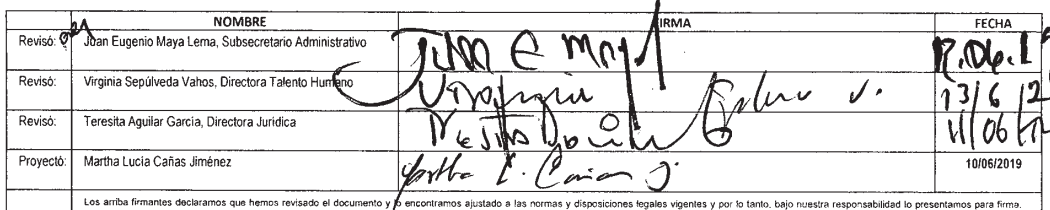 NOMBRE FIRMA FECHA
Revisó: Juan Eugenio Maya Lema, Subsecretario Administrativo Juan E Maya
Revisó: Virginia Sepúlveda Vahos, Directora Talento Humano Virginia V. 13/6
Revisó: Teresita Aguilar Garcia, Directora Jurídica 11/06
Proyectó: Martha Lucia Cañas Jiménez Martha L. Cañas J 10/06/2019
Los arriba firmantes declaramos que hemos revisado el documento y lo encontramos ajustado a las normas y disposiciones legales vigentes y por lo tanto, bajo nuestra responsabilidad lo presentamos para firma.